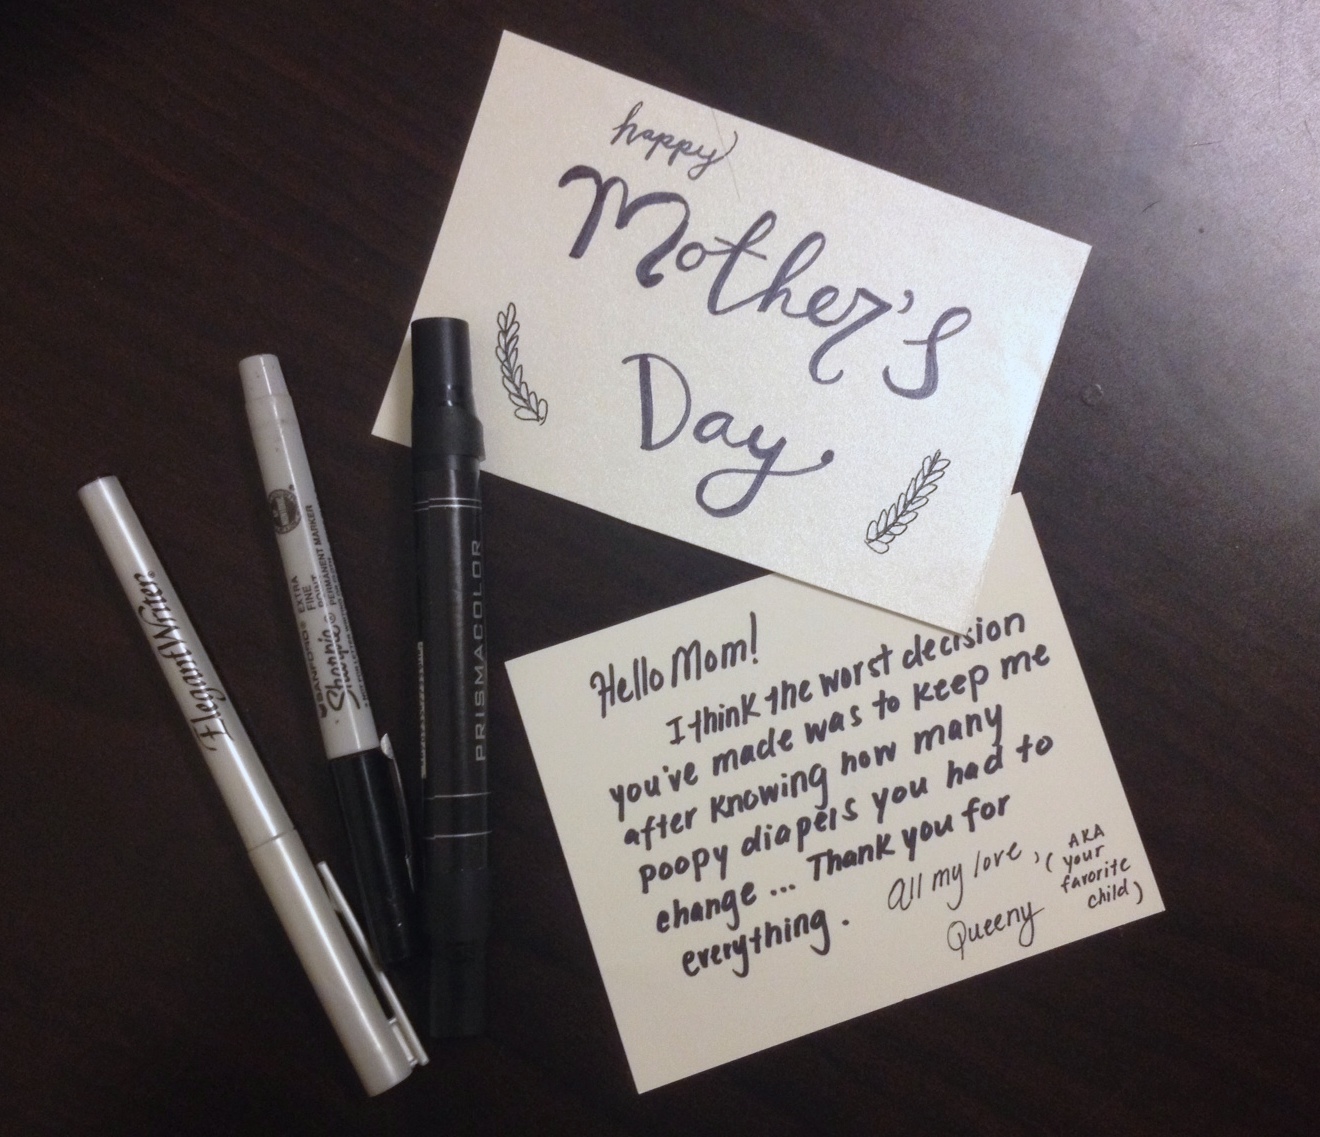 happy
Mother's
Day
Hello Mom!
I think the worst decision
you've made was to keep me
after knowing how many
poopy diapers you had to
change ... Thank you for
everything.
All my love,
Queeny
(AKA
your
favorite
child)
Elegant Writer
SANFORD® EXTRA
FINE
POINT
PERMANENT MARKER
Sharpie
PRISMACOLOR